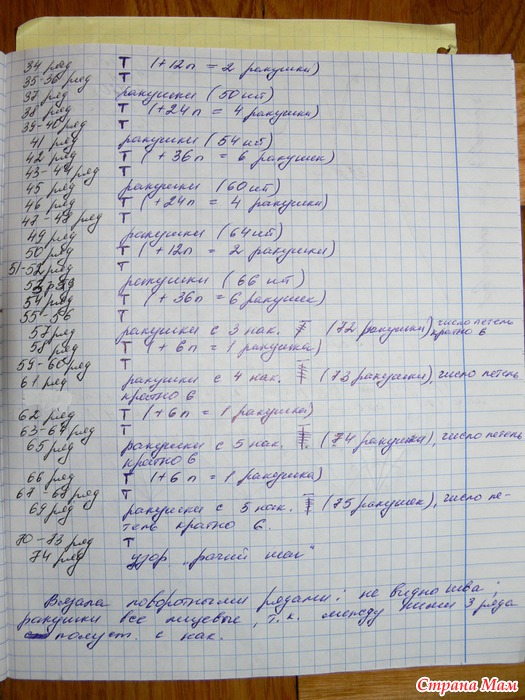 34 ряд Т (+12п = 2 ракушки)
35-36 ряд Т
37 ряд ракушки (50 шт)
38 ряд Т (+24п = 4 ракушки)
39-40 ряд Т
41 ряд ракушки (54 шт)
42 ряд Т (+ 36п = 6 ракушек)
43-44 ряд Т
45 ряд ракушки (60 шт)
46 ряд Т (+24п = 4 ракушки)
47-48 ряд Т
49 ряд ракушки (64 шт)
50 ряд Т (+ 12п = 2 ракушки)
51-52 ряд Т
53 ряд ракушки (66 шт)
54 ряд Т (+ 36п = 6 ракушек)
55-56 Т
57 ряд ракушки с 3 нак. (72 ракушки) число петель
кратно 6
58 ряд Т (+ 6п = 1 ракушка)
59-60 ряд Т
61 ряд ракушки с 4 нак. (73 ракушки), число петель
кратно 6
62 ряд Т (+6п = 1 ракушка)
63-64 ряд Т
65 ряд ракушки с 5 нак. (74 ракушки), число петель
кратно 6
66 ряд Т (+6п = 1 ракушка)
67-68 ряд Т
69 ряд ракушки с 5 нак. (75 ракушек), число пе-
тель кратно 6.
70-73 ряд Т
74 ряд узор „рачий шаг"
Вязала поворотными рядами: не видно шва;
ракушки все лицевые, т.к. между ними 3 ряда
полуст. с нак.
Страна Мам